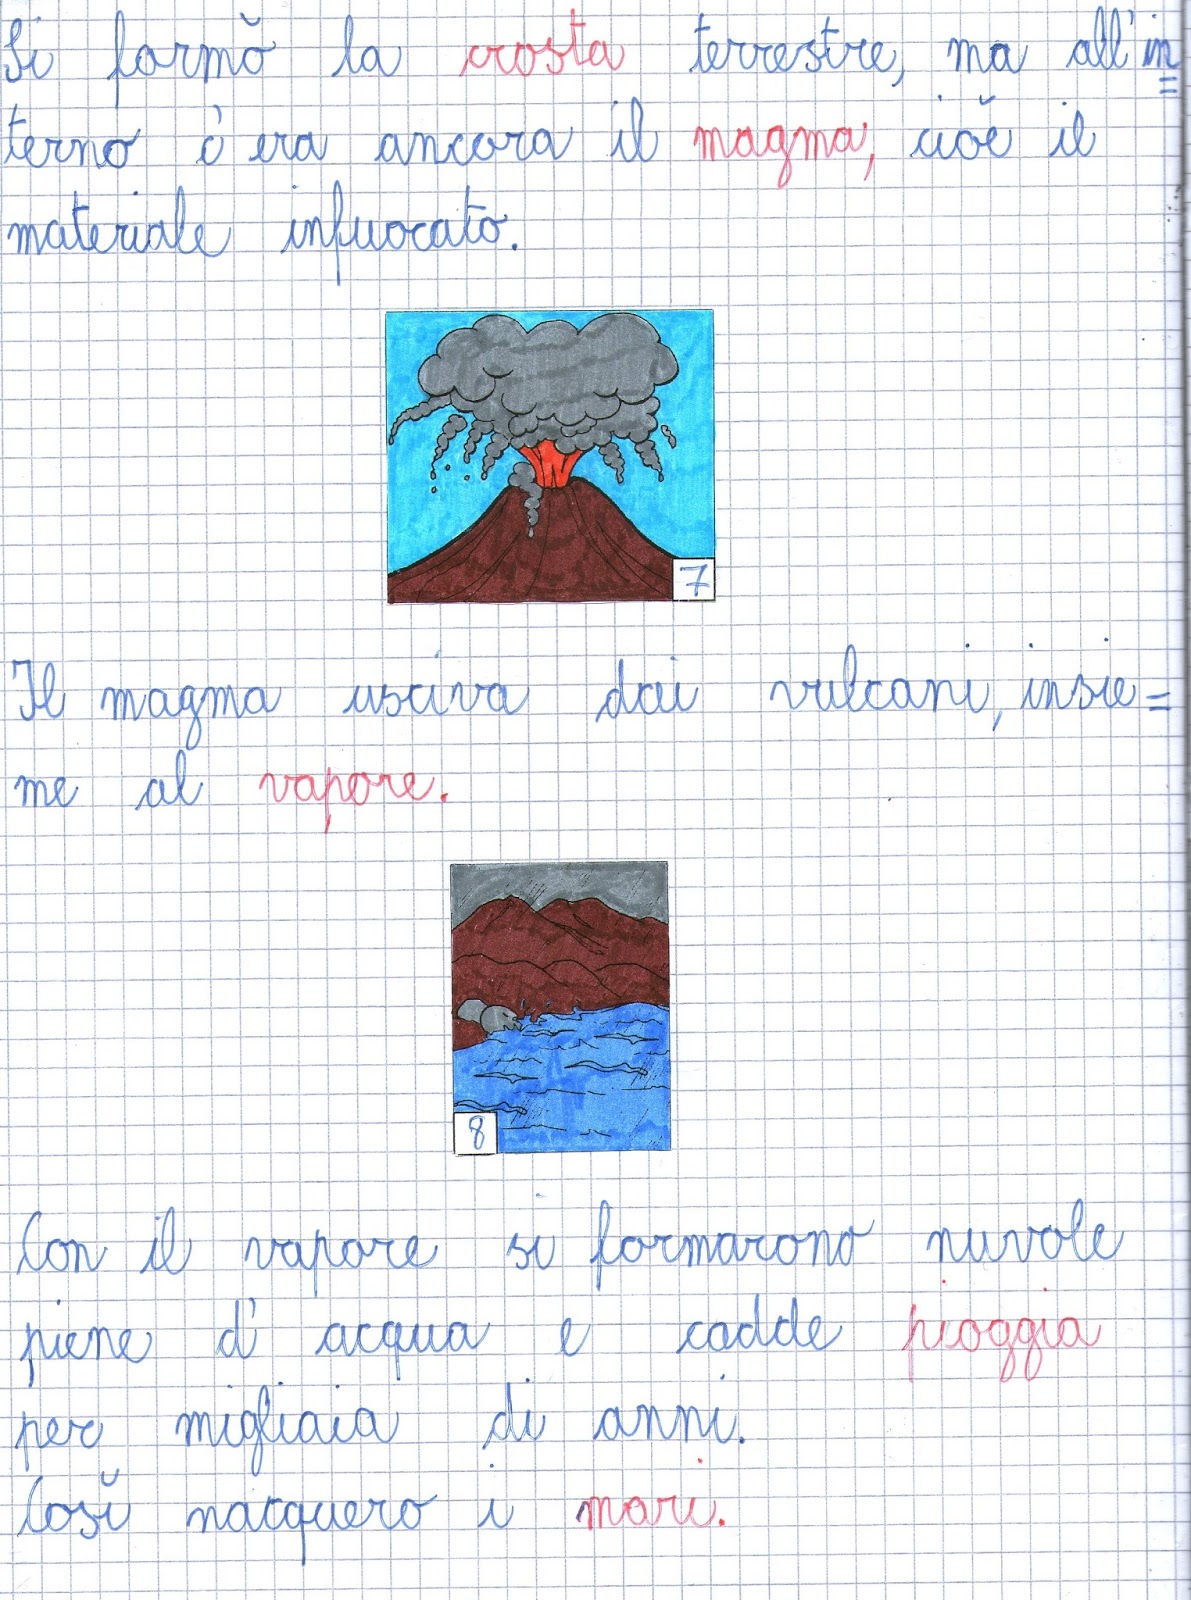 Si formò la crosta terrestre, ma all'in=
terno c'era ancora il magma, cioè il
materiale infuocato.
7
Il magma usciva dai vulcani, insie=
me al vapore.
8
Con il vapore si formarono nuvole
piene d'acqua e cadde pioggia
per migliaia di anni.
Così nacquero i mari.